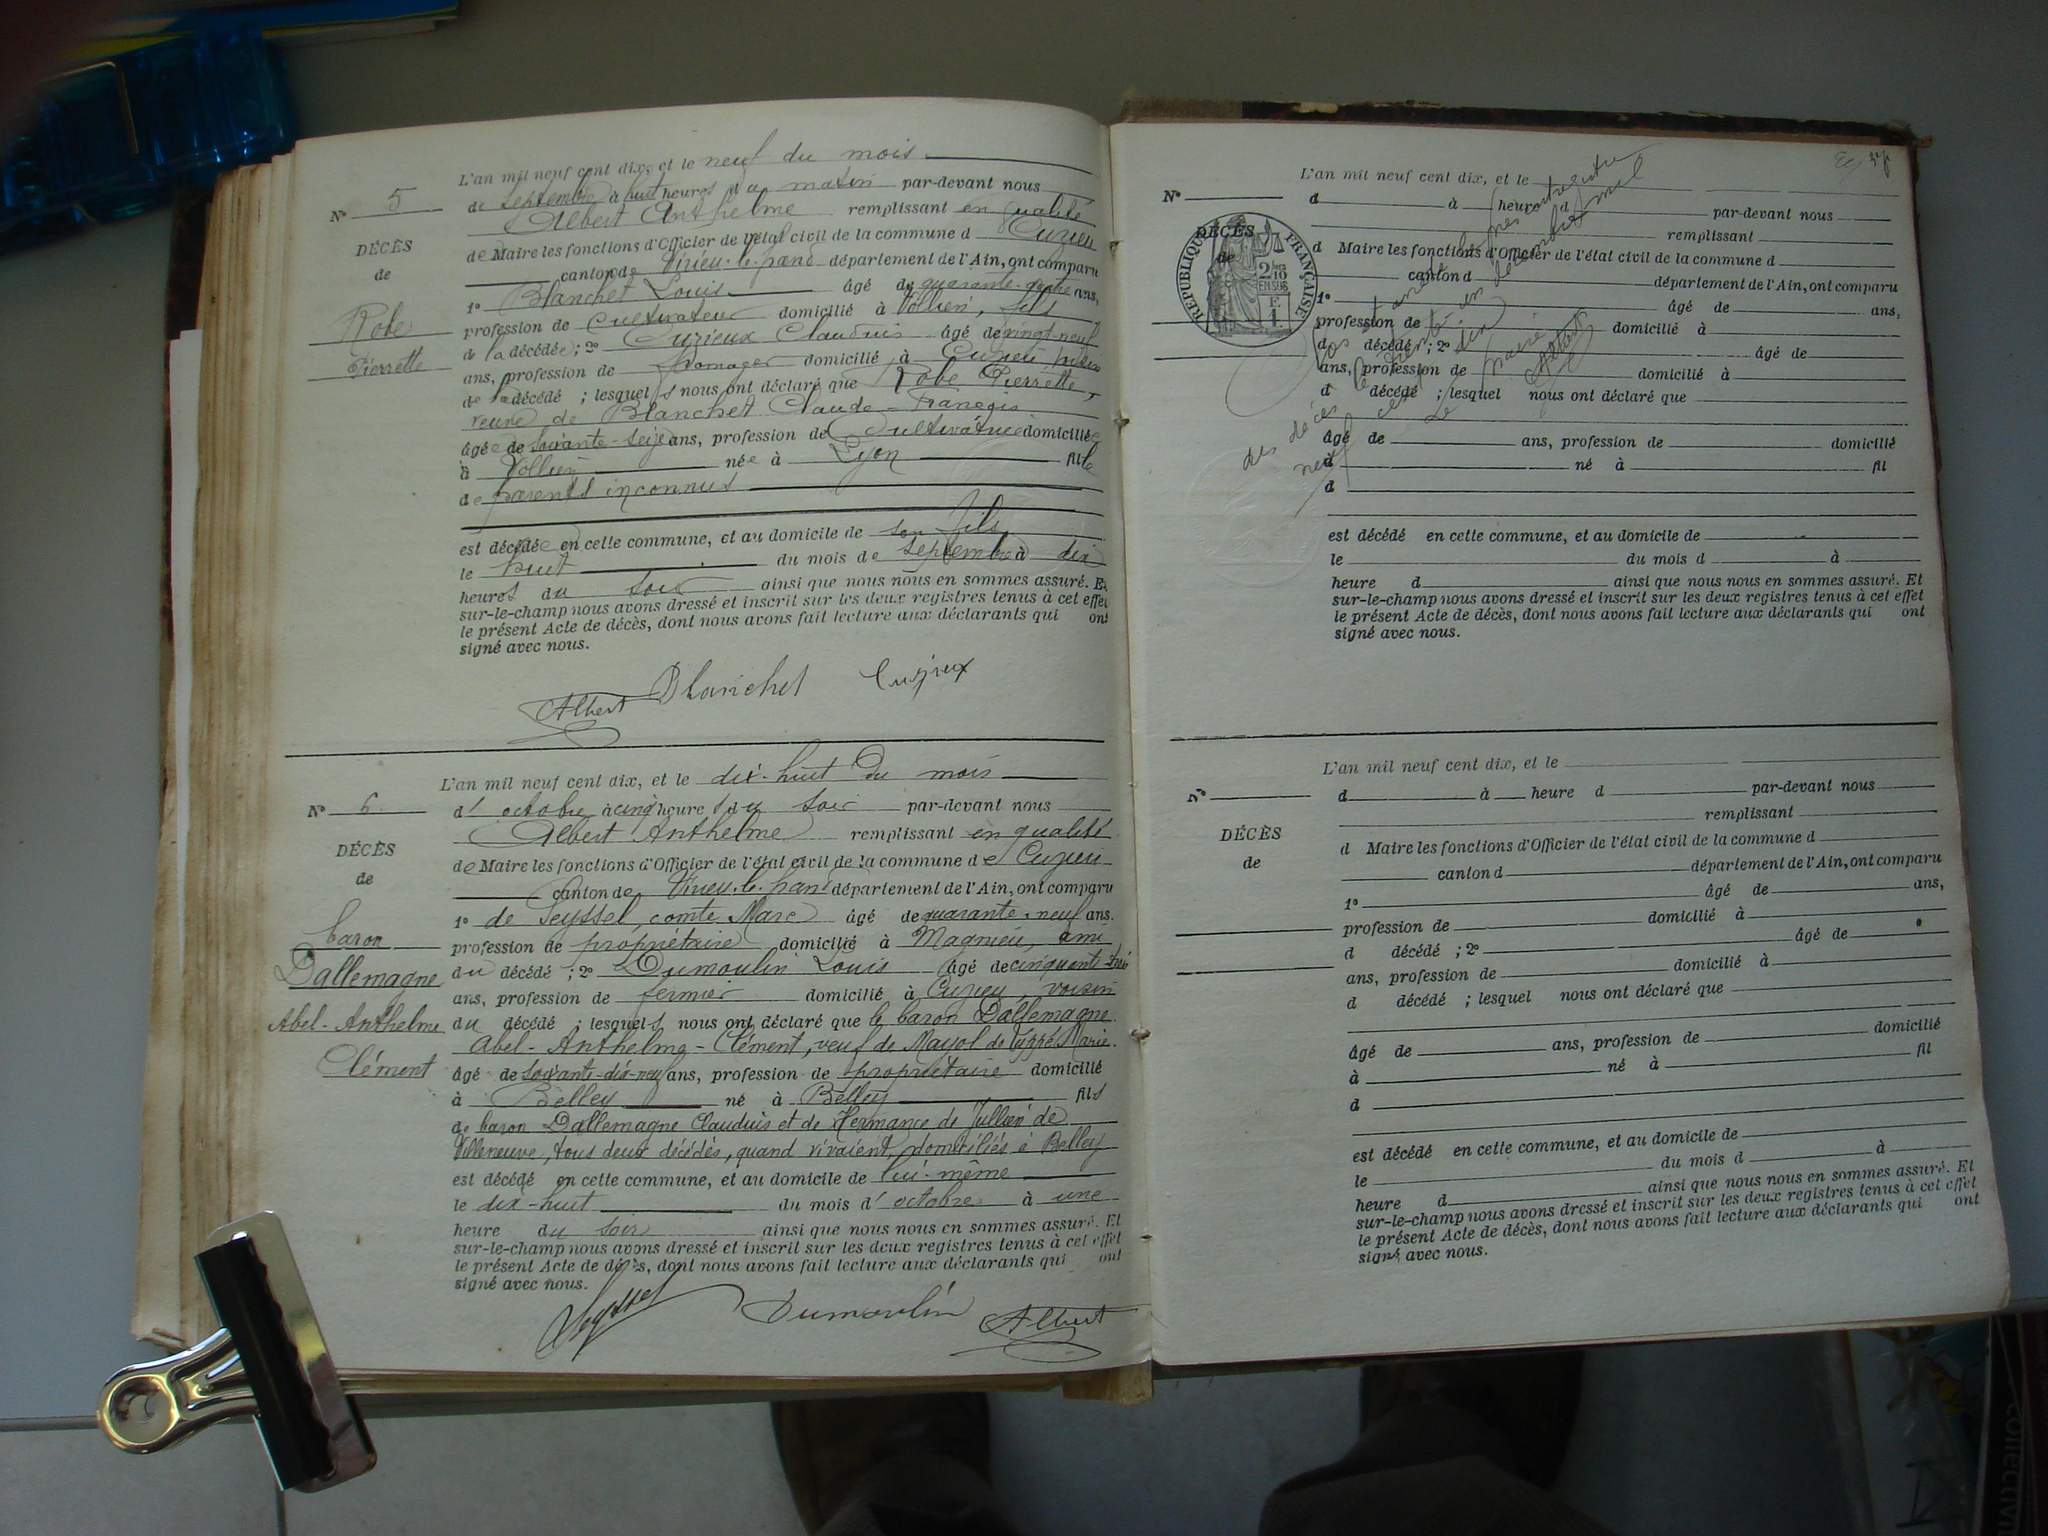 L'an mil neuf cent dix, et le neuf du mois
de septembre à huit heures du matin par-devant nous
N° 5
Albert Anthelme remplissant en qualité
DÉCÈS
de Maire les fonctions d'Officier de l'état civil de la commune d Cuzieu
de
canton de Virieu-le-Grand département de l'Ain, ont comparu
1° Blanchet Louis âgé de quarante ans,
Robe
profession de cultivateur domicilié à Vollien, fils
Pierrette
de la décédée ; 2° Cuzieux Claudius âgé de vingt-neuf
ans, profession de fromager domicilié à Cuzieu voisin
de la décédé ; lesquels nous ont déclaré que Robe Pierrette,
veuve de Blanchet Claude-François
âgée de soixante-seize ans, profession de Cultivatrice domiciliée
à Vollien née à Lyon fille
de parents inconnus
est décédée en cette commune, et au domicile de son fils
le huit du mois de septembre à dix
heures du soir ainsi que nous nous en sommes assuré. Et
sur-le-champ nous avons dressé et inscrit sur les deux registres tenus à cet effet
le présent Acte de décès, dont nous avons fait lecture aux déclarants qui ont
signé avec nous.
Albert Blanchet Cuzieux
L'an mil neuf cent dix, et le dix-huit Du mois
N° 6
d' octobre à cinq heures du soir par-devant nous
Albert Anthelme remplissant en qualité
DÉCÈS
de Maire les fonctions d'Officier de l'état civil de la commune de Cuzieu
de
canton de Virieu-le-Grand département de l'Ain, ont comparu
1° de Seyssel, comte Marc âgé de quarante-neuf ans.
baron
profession de propriétaire domicilié à Magnieu, ami
Dallemagne
du décédé ; 2° Dumoulin Louis âgé de cinquante-trois
ans, profession de fermier domicilié à Cuzieu, voisin
Abel-Anthelme
du décédé ; lesquels nous ont déclaré que le baron Dallemagne
Abel-Anthelme-Clément, veuf de Mayol de Luppé Marie.
Clément
âgé de soixante-dix-neuf ans, profession de propriétaire domicilié
à Belley né à Belley fils
de baron Dallemagne Claudius et de Hermance de Jullien de
Villeneuve, tous deux décédés, quand vivaient domiciliés à Belley
est décédé en cette commune, et au domicile de lui-même
le dix-huit du mois d' octobre à une
heure du soir ainsi que nous nous en sommes assuré. Et
sur-le-champ nous avons dressé et inscrit sur les deux registres tenus à cet effet
le présent Acte de décès, dont nous avons fait lecture aux déclarants qui ont
signé avec nous.
Seyssel Dumoulin Albert
L'an mil neuf cent dix, et le
N°
d à heure d par-devant nous
remplissant
DÉCÈS
de
RÉPUBLIQUE FRANÇAISE
2/10
EN SUS
d Maire les fonctions d'Officier de l'état civil de la commune d
canton d département de l'Ain, ont comparu
1° âgé de ans,
profession de domicilié à
d décédé ; 2° âgé de
ans, profession de domicilié à
d décédé ; lesquel nous ont déclaré que
âgé de ans, profession de domicilié
à né à fil
d
est décédé en cette commune, et au domicile de
le du mois d à
heure d ainsi que nous nous en sommes assuré. Et
sur-le-champ nous avons dressé et inscrit sur les deux registres tenus à cet effet
le présent Acte de décès, dont nous avons fait lecture aux déclarants qui ont
signé avec nous.
des décès
décembre mil
neuf cent dix
Le maire
Albert
L'an mil neuf cent dix, et le
N°
d à heure d par-devant nous
remplissant
DÉCÈS
d Maire les fonctions d'Officier de l'état civil de la commune d
de
canton d département de l'Ain, ont comparu
1° âgé de ans,
profession de domicilié à
d décédé ; 2° âgé de
ans, profession de domicilié à
d décédé ; lesquel nous ont déclaré que
âgé de ans, profession de domicilié
à né à fil
d
est décédé en cette commune, et au domicile de
le du mois d à
heure d ainsi que nous nous en sommes assuré. Et
sur-le-champ nous avons dressé et inscrit sur les deux registres tenus à cet effet
le présent Acte de décès, dont nous avons fait lecture aux déclarants qui ont
signé avec nous.